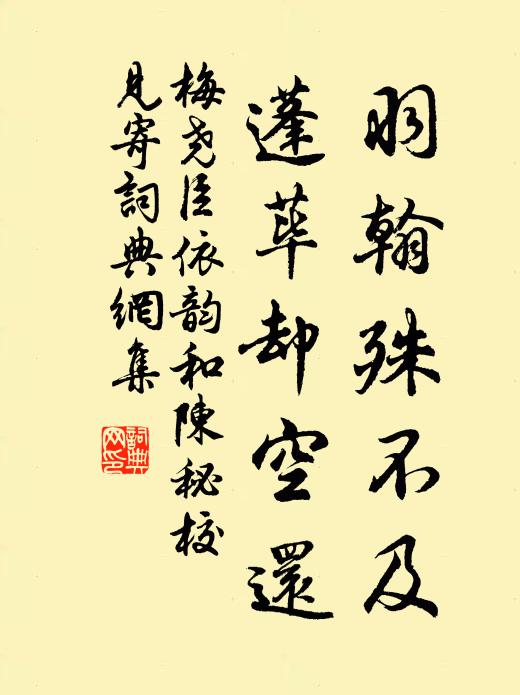 羽翰殊不及
蓬荜却空還
梅堯臣依韵和陳秘校
見寄詞典網集
詞典
网印